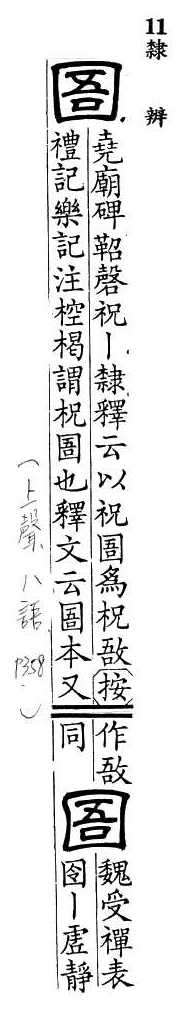 11 隸辨
圄
堯廟碑鞀磬祝丨隸釋云以祝圄爲柷敔按
禮記樂記注椌楬謂柷圄也釋文云圄本又
作敔
同
圄
魏受禪表
囹丨虛靜
(上聲 八語 P358.)